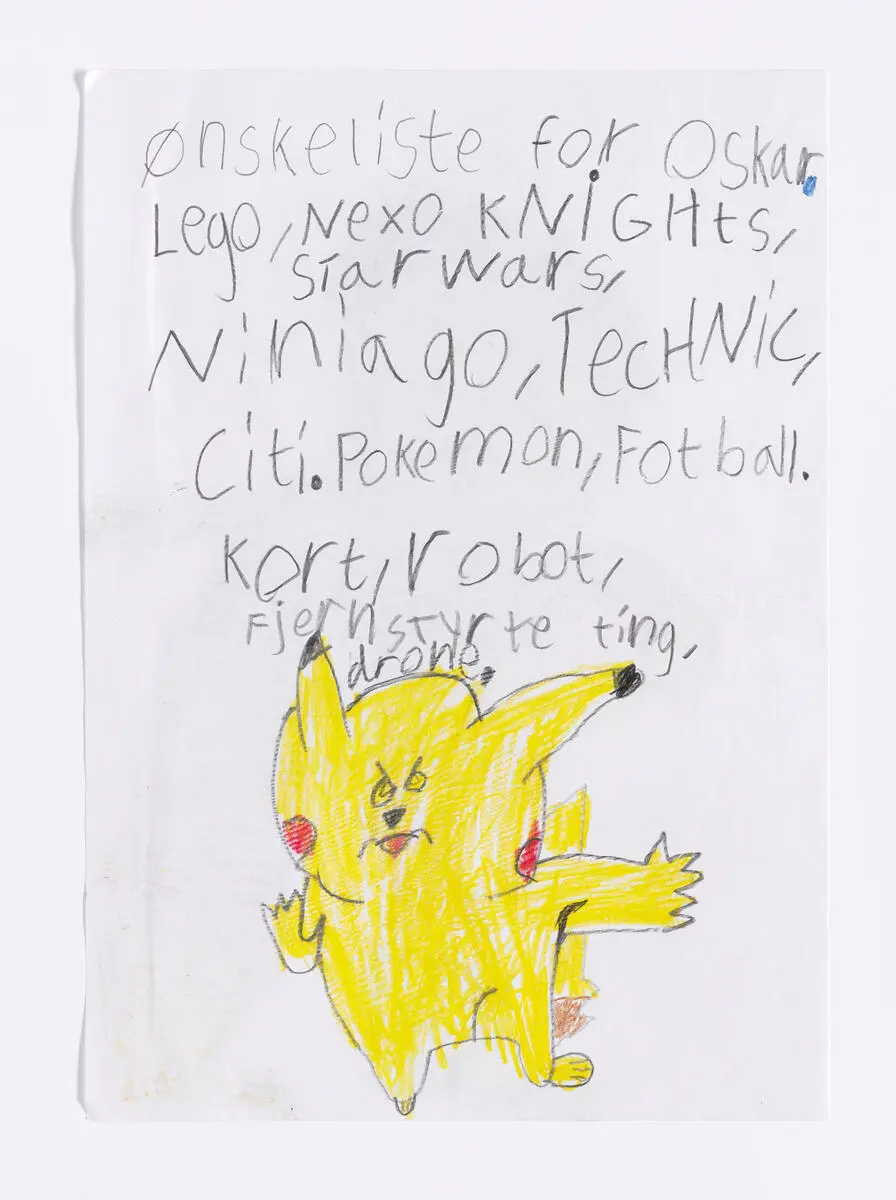 Ønskeliste for Oskar.
Lego, Nexo KNiGHts,
starwars,
NiNiago, TecHNic,
Citi. Pokemon, Fotball.
Kort, robot,
Fjernstyrte ting,
drone.